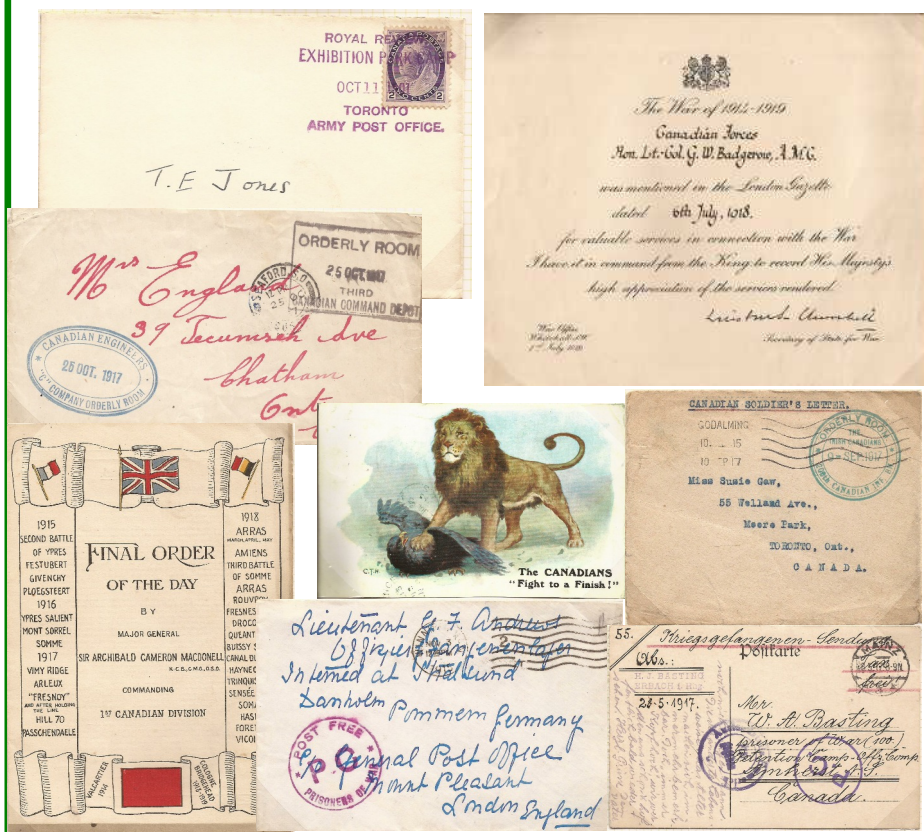 ROYAL
EXHIBITION
OCT 11
TORONTO
ARMY POST OFFICE.
CANADA POSTAGE
2 CENTS 2
T. E Jones
The War of 1914-1919
Canadian Forces
Hon. Lt.-Col. G. W. Badgerow, A.M.C.
was mentioned in the London Gazette
dated 6th July, 1918.
for valuable services in connection with the War
I have it in command from the King to record His Majesty's
high appreciation of the services rendered.
Winston S. Churchill
War Office
Whitehall, S.W.
1st July 1919
Secretary of State for War
ORDERLY ROOM
25 OCT. 1917
THIRD
CANADIAN COMMAND DEPOT
SEAFORD S.O
25
Mrs England
39 Tecumseh Ave
Chatham
Ont
CANADIAN ENGINEERS
25 OCT. 1917
COMPANY ORDERLY ROOM
1915
SECOND BATTLE
OF YPRES
FESTUBERT
GIVENCHY
PLOEGSTEERT
1916
YPRES SALIENT
MONT SORREL
SOMME
1917
VIMY RIDGE
ARLEUX
"FRESNOY"
AND AFTER HOLDING
THE LINE
HILL 70
PASSCHENDAELE
VALCARTIER
1914
FINAL ORDER
OF THE DAY
BY
MAJOR GENERAL
SIR ARCHIBALD CAMERON MACDONELL
K.C.B., C.M.G., D.S.O.
COMMANDING
1ST CANADIAN DIVISION
1918
ARRAS
MARCH, APRIL, MAY
AMIENS
THIRD BATTLE
OF SOMME
ARRAS
ROUVROY
FRESNES
DROCO
QUEANT
BUISSY S
CANAL DU
HAYNEC
TRINQUI
SENSÉE
SOM
HAS
FORE
VICO
COLOGNE
BRIDGEHEAD
1918-1919
C.T.H.
The CANADIANS
"Fight to a Finish!"
CANADIAN SOLDIER'S LETTER.
GODALMING
10. 15
10 SP 17
ORDERLY ROOM
THE
IRISH CANADIANS
SEP 1917
CANADIAN INF.
Miss Susie Gaw,
55 Welland Ave.,
Moore Park,
TORONTO, Ont.,
CANADA.
Lieutenant G. F. Andrews
Offizier Gefangenenlager
Interned at Stralsund
Danholm Pommern Germany
c/o General Post Office
Mount Pleasant
London England
POST FREE
P.C.
PRISONERS OF WAR
55.
Kriegsgefangenen-Sendung
Postkarte
MAINZ
Abs.:
H. J. BASTING
28-5-1917.
Mer
W. A. Basting
prisoner of War (100.)
Detention Camp
Amherst N.S.
Canada.